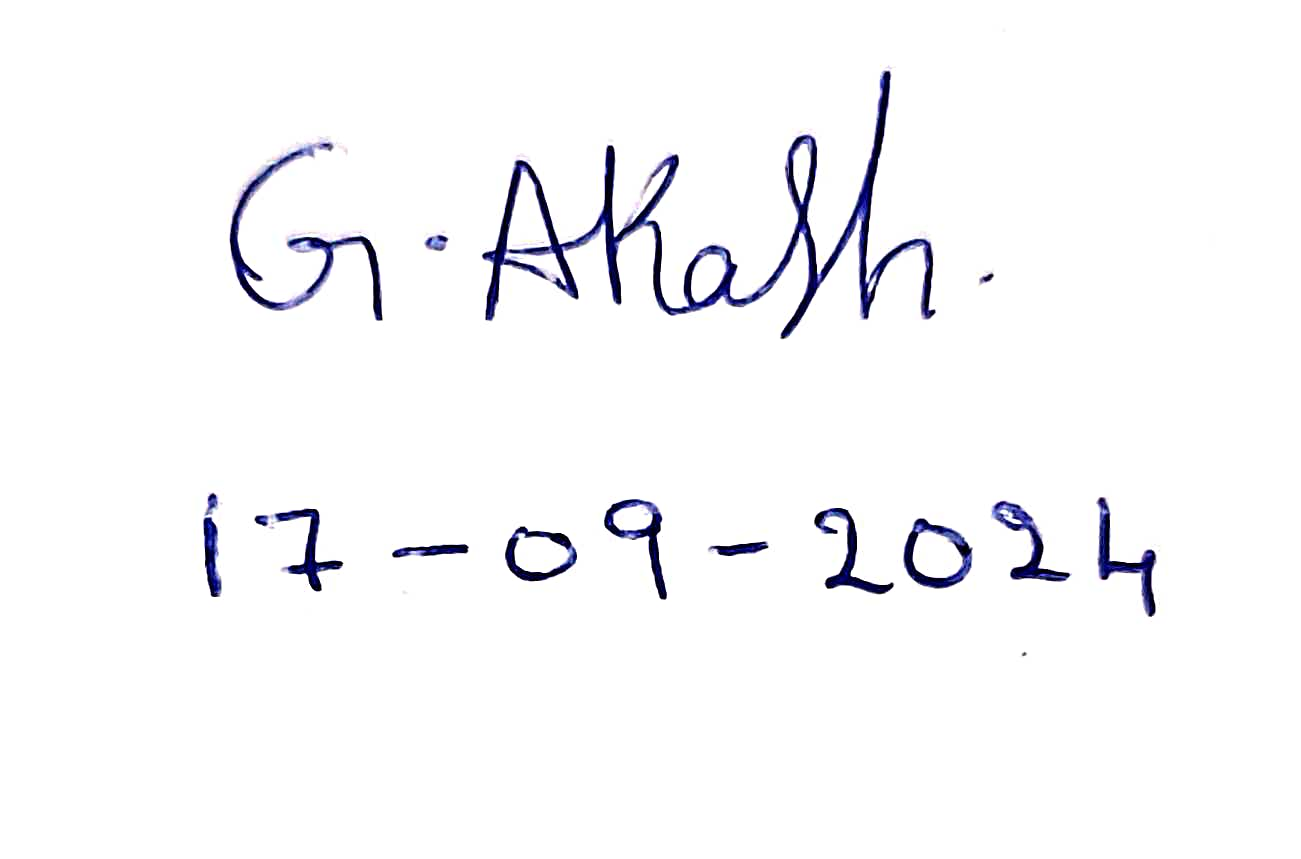 G. Akash.
17-09-2024